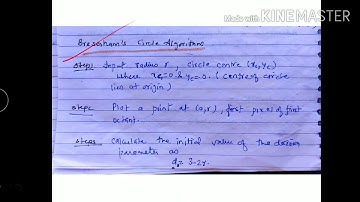 Made with KINEMASTER
Bresenham's Circle Algorithm
Step1 Input radius r, circle centre (xc, yc)
where xc=0 & yc=0. (centre of circle
lies at origin)
Step2 Plot a point at (0,r), first pixel of first
octant.
Step3 Calculate the initial value of the decision
parameter as
d0= 3-2r.